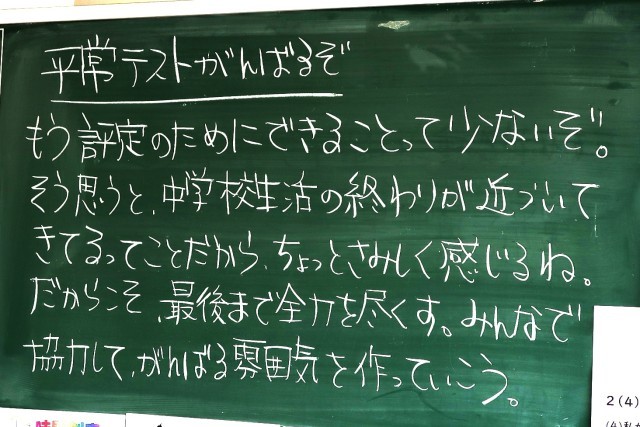 平常テストがんばるぞ
もう評定のためにできることって少ないぞ。
そう思うと、中学校生活の終わりが近づいて
きてるってことだから、ちょっとさみしく感じるね。
だからこそ、最後まで全力を尽くす。みんなで
協力して、がんばる雰囲気を作っていこう。
2(4)